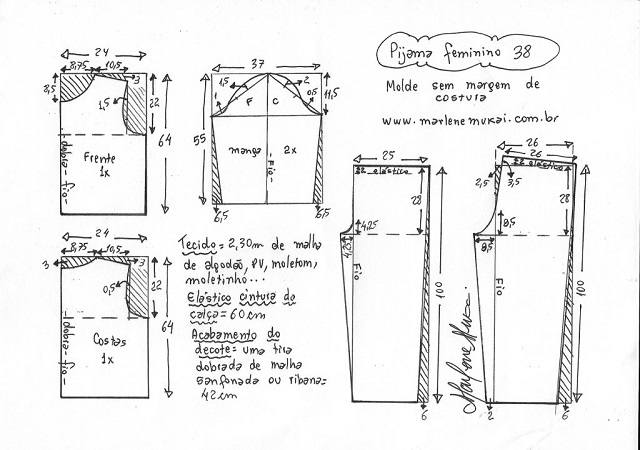 Pijama feminino 38
Molde sem margem de
costura
www.marlenemukai.com.br
24
8,75 10,5
3
8,5
1,5
22
64
dobra-fio
Frente
1x
37
1,5
2
1
0,5
11,5
F C
55
manga 2x
Fio
6,5 6,5
24
8,75 10,5
3 3
0,5
22
64
dobra-fio
Costas
1x
Tecido= 2,30m de malha
de algodão, PV, moletom,
moletinho...
Elástico cintura da
calça= 60cm
Acabamento do
decote= uma tira
dobrada de malha
sanfonada ou ribana=
42cm
25
elástico
28
4,25
4,25
Fio
100
6
26
26
elástico
2,5 3,5
28
8,5
8,5
Fio
100
2 6